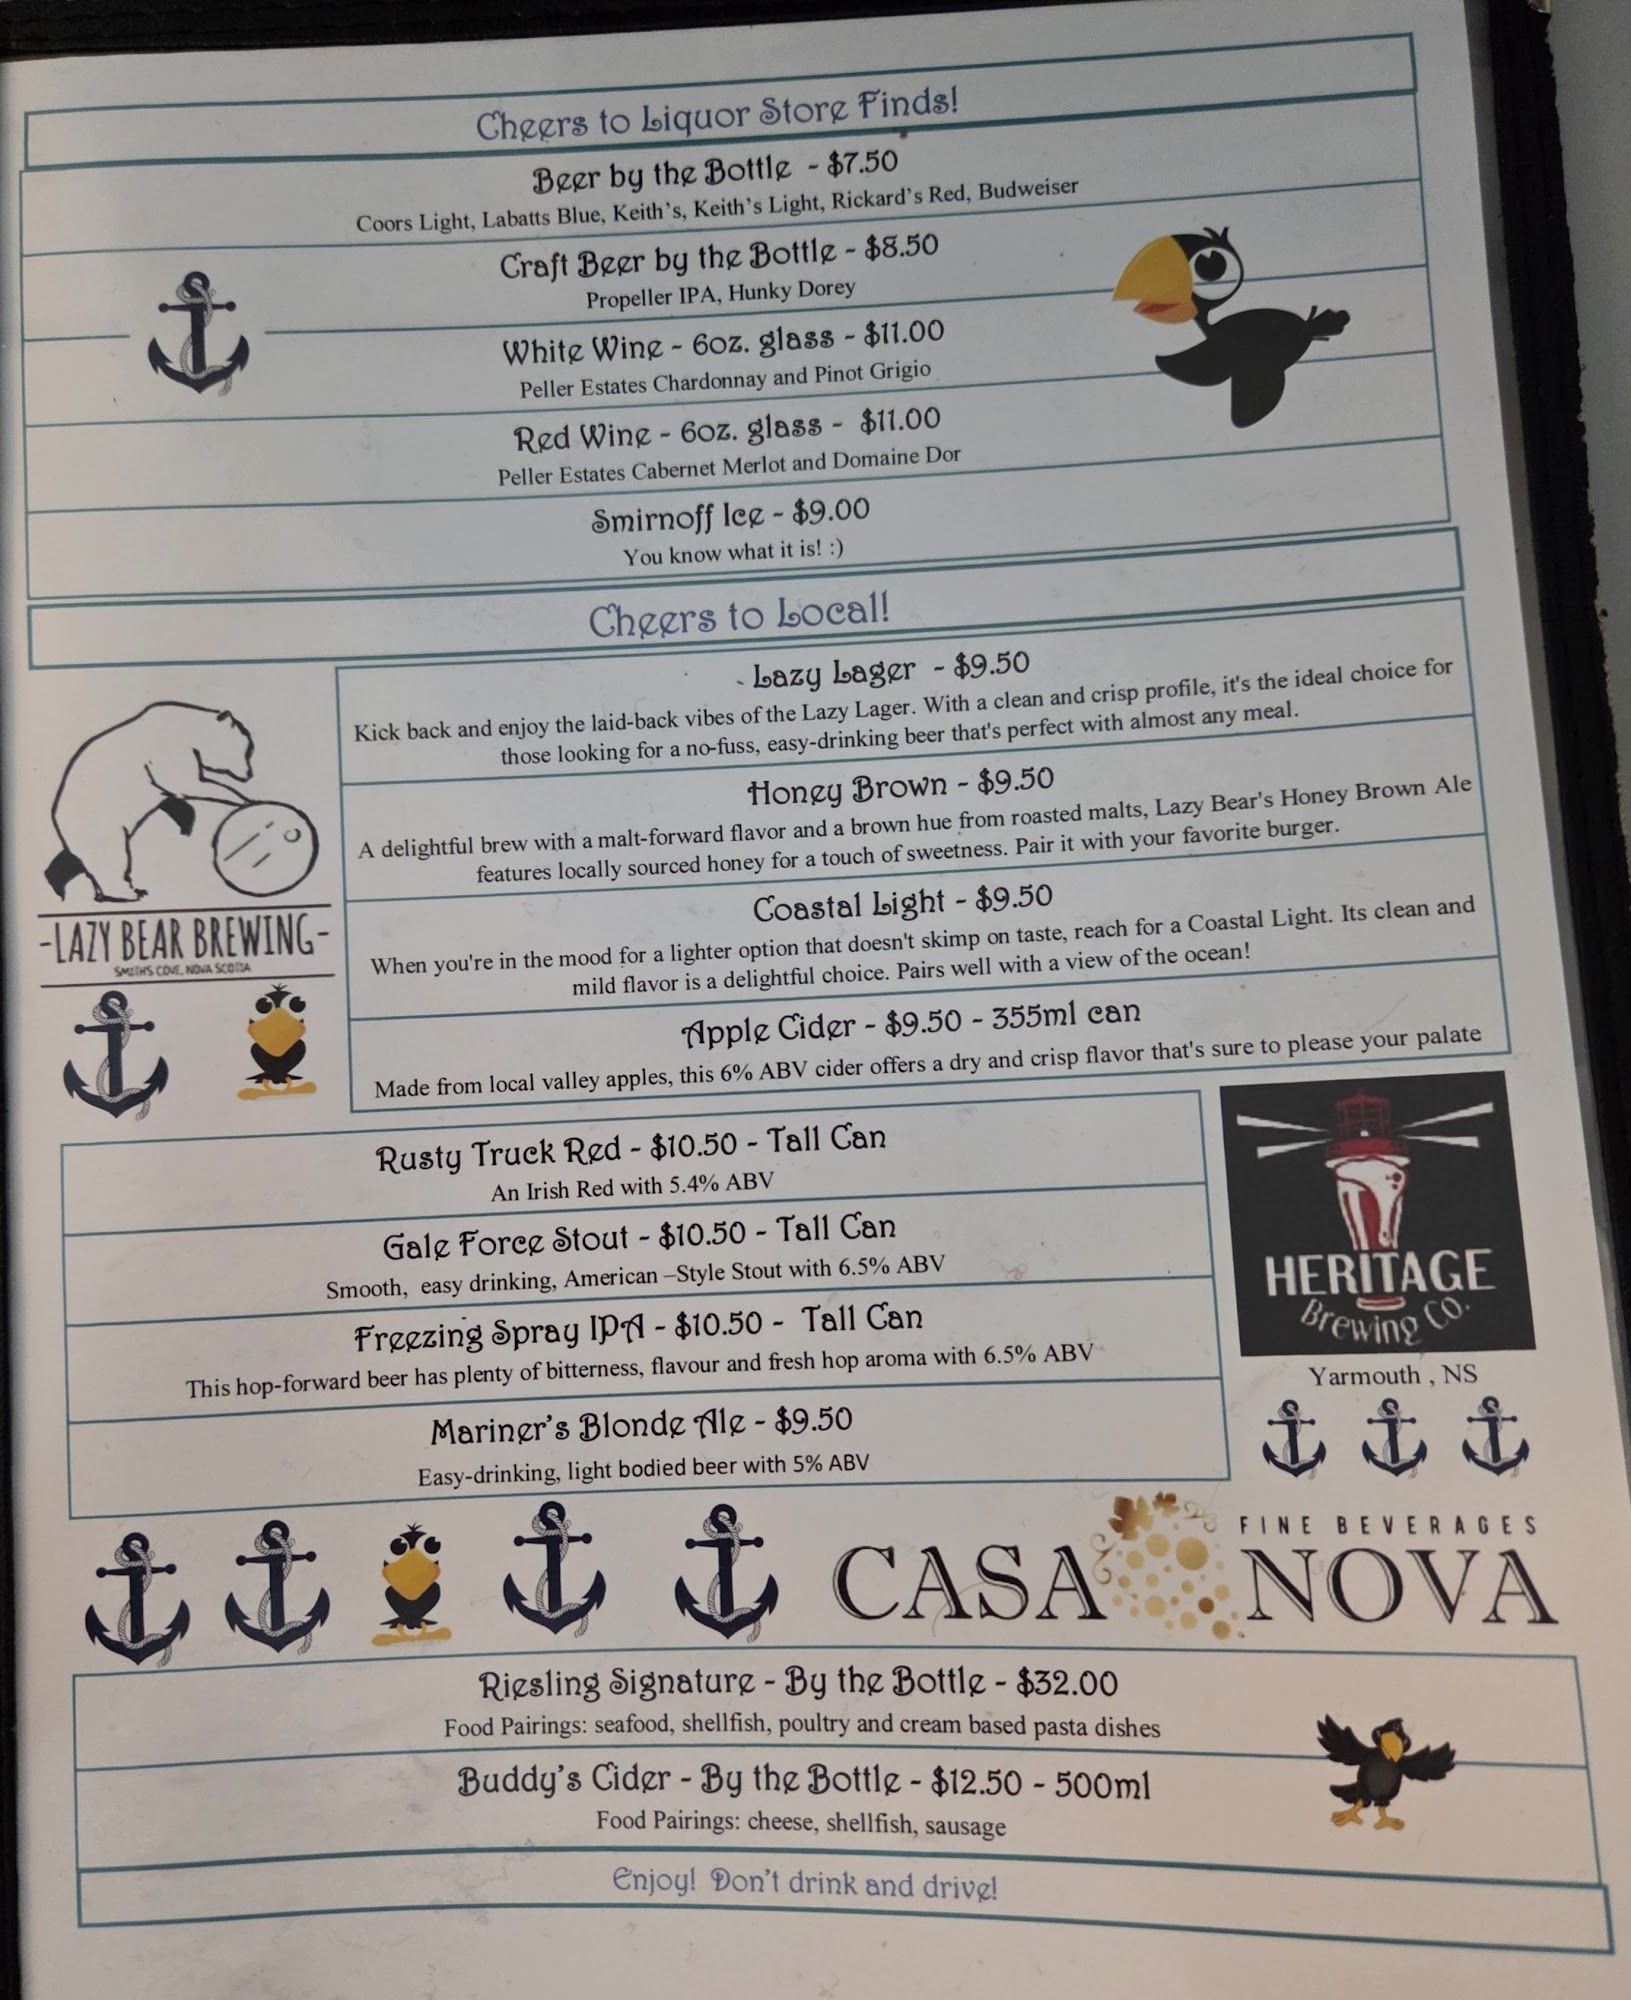 Cheers to Liquor Store Finds!
Beer by the Bottle - $7.50
Coors Light, Labatts Blue, Keith's, Keith's Light, Rickard's Red, Budweiser
Craft Beer by the Bottle - $8.50
Propeller IPA, Hunky Dorey
White Wine - 6oz. glass - $11.00
Peller Estates Chardonnay and Pinot Grigio
Red Wine - 6oz. glass - $11.00
Peller Estates Cabernet Merlot and Domaine Dor
Smirnoff Ice - $9.00
You know what it is! :)
Cheers to Local!
Lazy Lager - $9.50
Kick back and enjoy the laid-back vibes of the Lazy Lager. With a clean and crisp profile, it's the ideal choice for
those looking for a no-fuss, easy-drinking beer that's perfect with almost any meal.
Honey Brown - $9.50
A delightful brew with a malt-forward flavor and a brown hue from roasted malts, Lazy Bear's Honey Brown Ale
features locally sourced honey for a touch of sweetness. Pair it with your favorite burger.
Coastal Light - $9.50
When you're in the mood for a lighter option that doesn't skimp on taste, reach for a Coastal Light. Its clean and
mild flavor is a delightful choice. Pairs well with a view of the ocean!
Apple Cider - $9.50 - 355ml can
Made from local valley apples, this 6% ABV cider offers a dry and crisp flavor that's sure to please your palate
-LAZY BEAR BREWING-
SMITH'S COVE, NOVA SCOTIA
Rusty Truck Red - $10.50 - Tall Can
An Irish Red with 5.4% ABV
Gale Force Stout - $10.50 - Tall Can
Smooth, easy drinking, American –Style Stout with 6.5% ABV
Freezing Spray IPA - $10.50 - Tall Can
This hop-forward beer has plenty of bitterness, flavour and fresh hop aroma with 6.5% ABV
Mariner's Blonde Ale - $9.50
Easy-drinking, light bodied beer with 5% ABV
HERITAGE
Brewing Co.
Yarmouth , NS
FINE BEVERAGES
CASA NOVA
Riesling Signature - By the Bottle - $32.00
Food Pairings: seafood, shellfish, poultry and cream based pasta dishes
Buddy's Cider - By the Bottle - $12.50 - 500ml
Food Pairings: cheese, shellfish, sausage
Enjoy! Don't drink and drive!